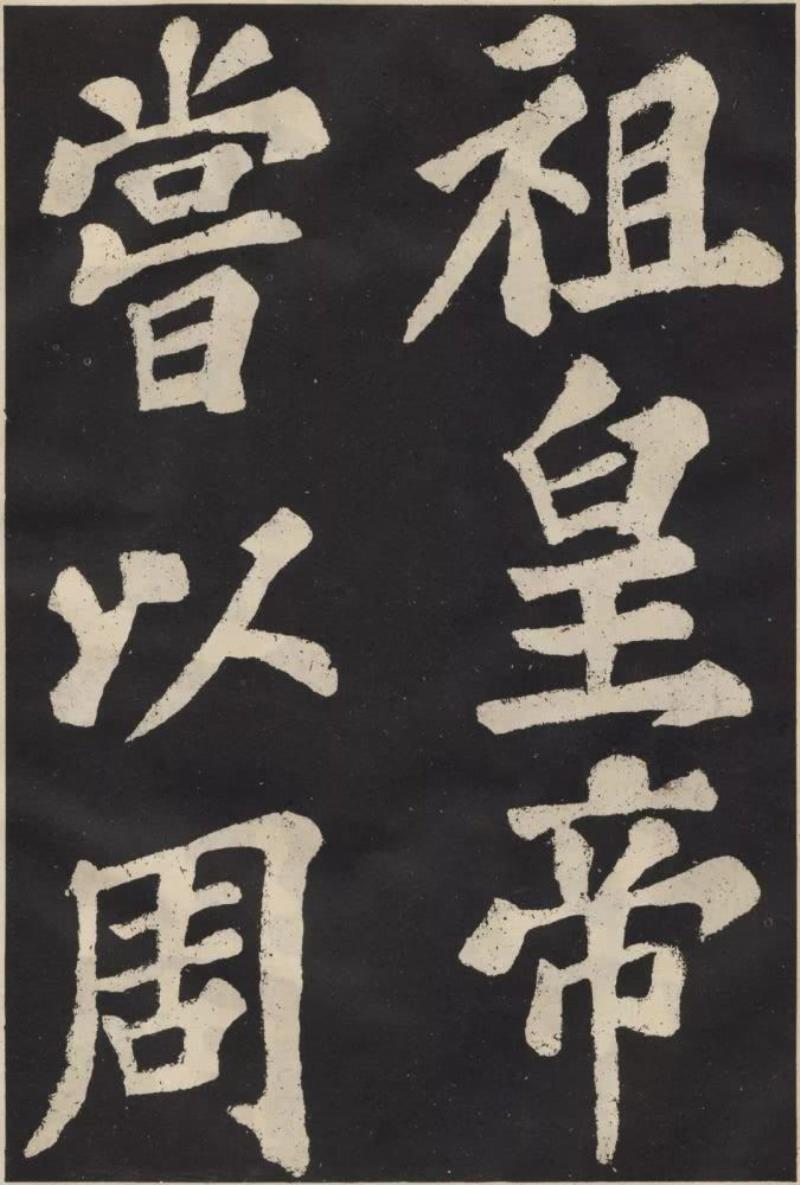 祖皇帝
嘗以周